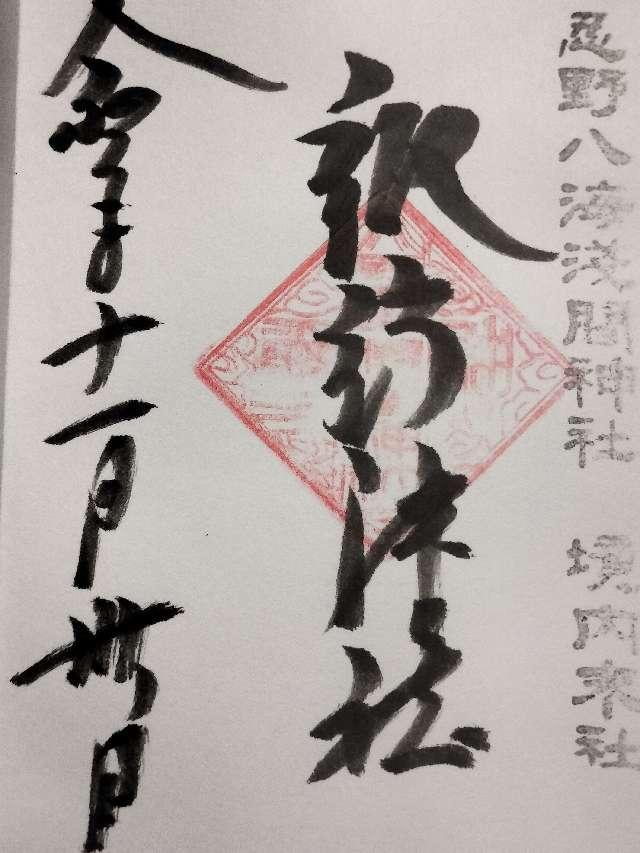 忍野八海淺間神社　境内末社
諏訪神社
令和年十一月卅日